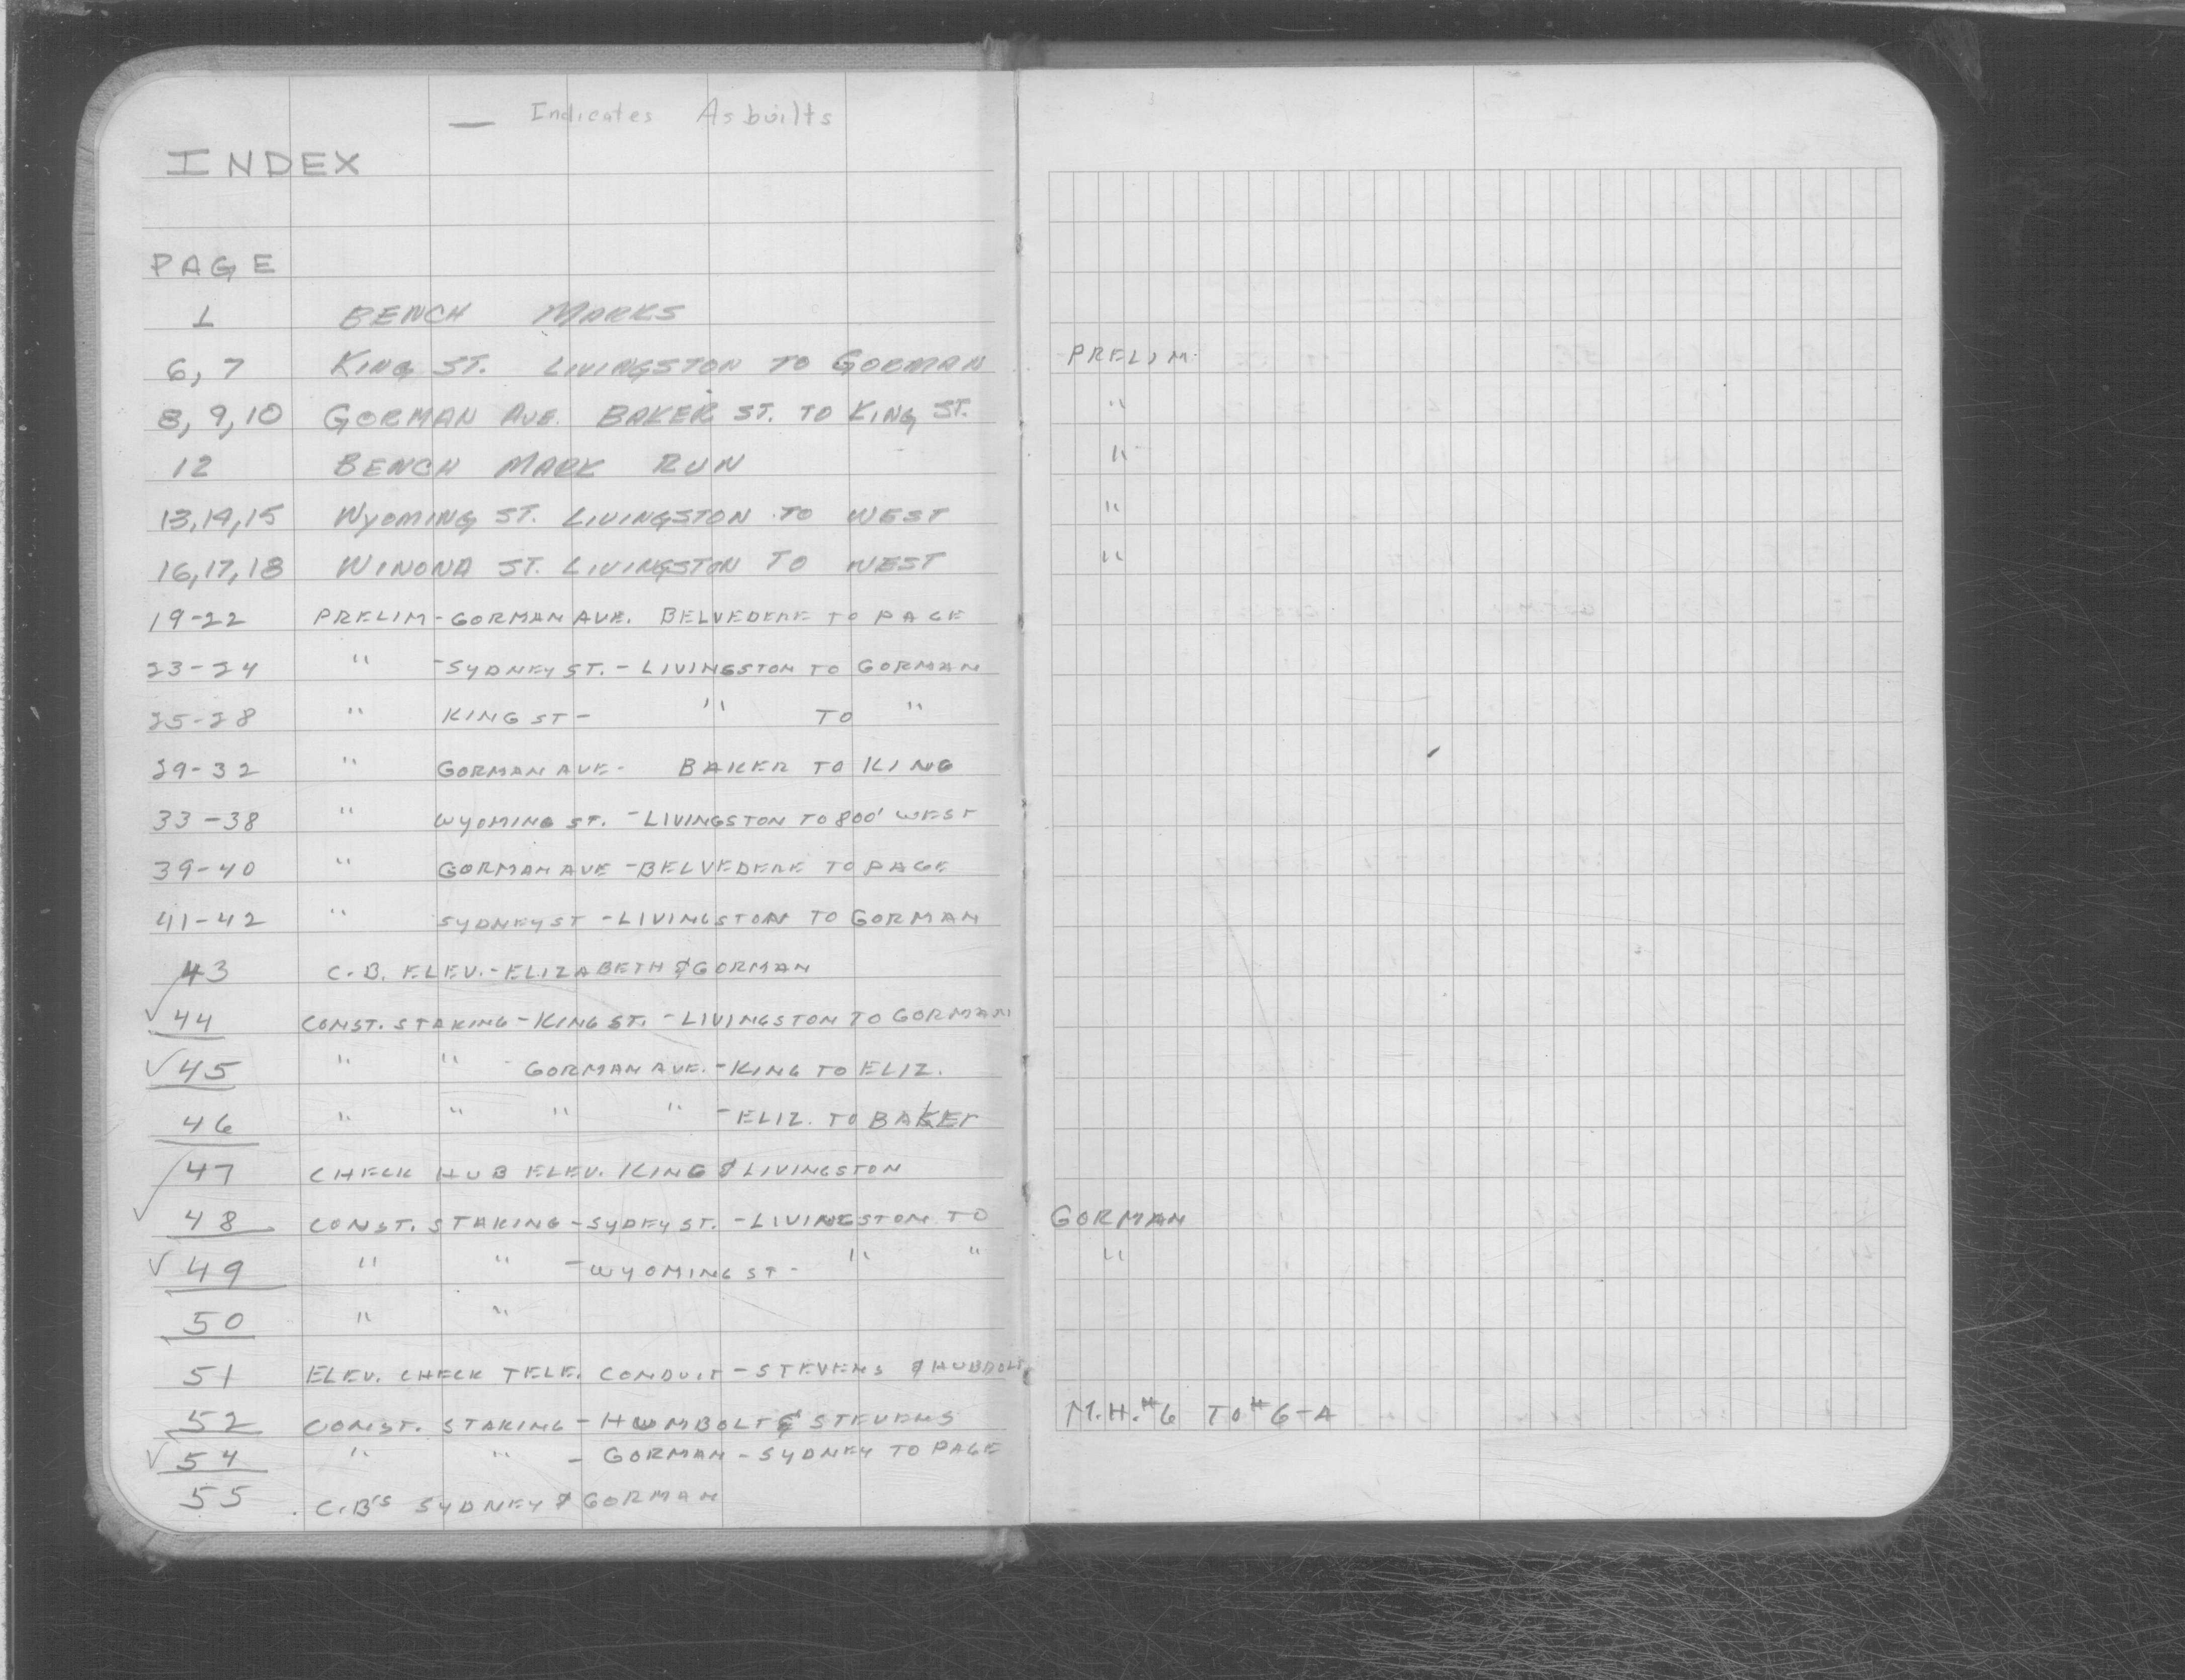 — Indicates Asbuilts
INDEX
PAGE
1 BENCH MARKS
6, 7 KING ST. LIVINGSTON TO GORMAN PRELIM.
8, 9, 10 GORMAN AVE. BAKER ST. TO KING ST. "
12 BENCH MARK RUN "
13, 14, 15 WYOMING ST. LIVINGSTON TO WEST "
16, 17, 18 WINONA ST. LIVINGSTON TO WEST "
19-22 PRELIM - GORMAN AVE. BELVEDERE TO PAGE
23-24 " - SYDNEY ST. - LIVINGSTON TO GORMAN
25-28 " KING ST - " TO "
29-32 " GORMAN AVE - BAKER TO KING
33-38 " WYOMING ST. - LIVINGSTON TO 800' WEST
39-40 " GORMAN AVE - BELVEDERE TO PAGE
41-42 " SYDNEY ST - LIVINGSTON TO GORMAN
43 C.B. ELEV. - ELIZABETH & GORMAN
✓ 44 CONST. STAKING - KING ST. - LIVINGSTON TO GORMAN
✓ 45 " " - GORMAN AVE. - KING TO ELIZ.
46 " " " " - ELIZ. TO BAKER
47 CHECK HUB ELEV. KING & LIVINGSTON
✓ 48 CONST. STAKING - SYDEY ST. - LIVINGSTON TO GORMAN
✓ 49 " " - WYOMING ST - " " "
50 " "
51 ELEV. CHECK TELE. CONDUIT - STEVENS &
52 CONST. STAKING - HUMBOLT & STEVENS M.H. #6 TO #6-A
✓ 54 " " - GORMAN - SYDNEY TO PAGE
55 C.B'S SYDNEY & GORMAN